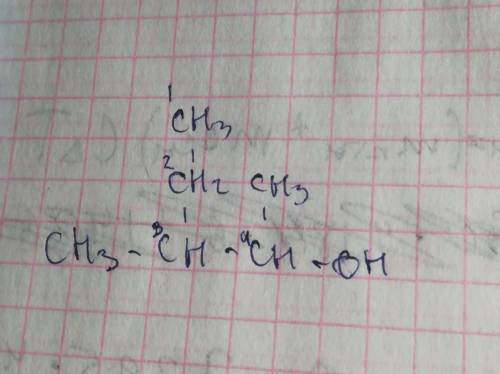 1
CH3
2
CH2 CH3
CH3 - 3CH - 4CH - OH